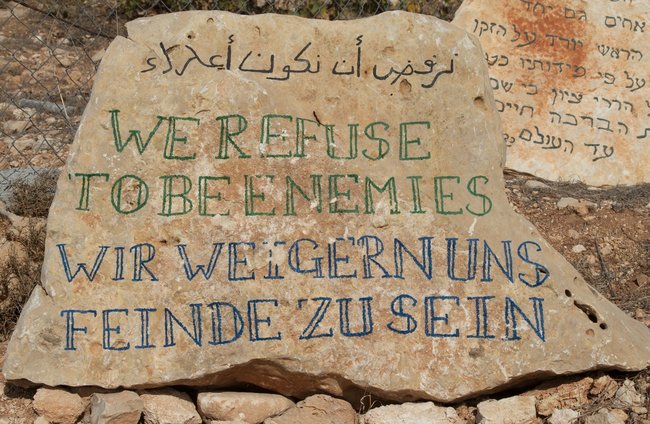 نرفض أن نكون أعداء
WE REFUSE
TO BE ENEMIES
WIR WEIGERN UNS
FEINDE ZU SEIN
אחים גם יחד
הראש יורד על הזקן
על פי מדותיו
הררי ציון כי שם
הברכה חיים
עד העולם